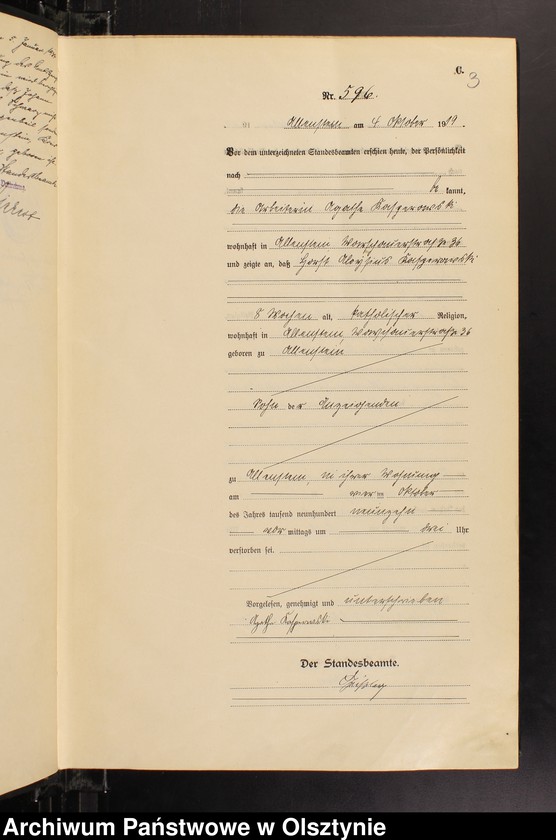 C.
3
Nr. 596.
Allenstein am 4. Oktober 1919.
Vor dem unterzeichneten Standesbeamten erschien heute, der Persönlichkeit
nach
be kannt,
die Arbeiterin Agathe
wohnhaft in Allenstein Warschauerstraße 36
und zeigte an, daß Horst Aloysius
8 Wochen alt, katholischer Religion,
wohnhaft in Allenstein, Warschauerstraße 36
geboren zu Allenstein
Sohn der Anzeigenden
zu Allenstein, in ihrer Wohnung
am vier ten Oktober
des Jahres tausend neunhundert neunzehn
vor mittags um drei Uhr
verstorben sei.
Vorgelesen, genehmigt und unterschrieben
Der Standesbeamte.
Archiwum Państwowe w Olsztynie